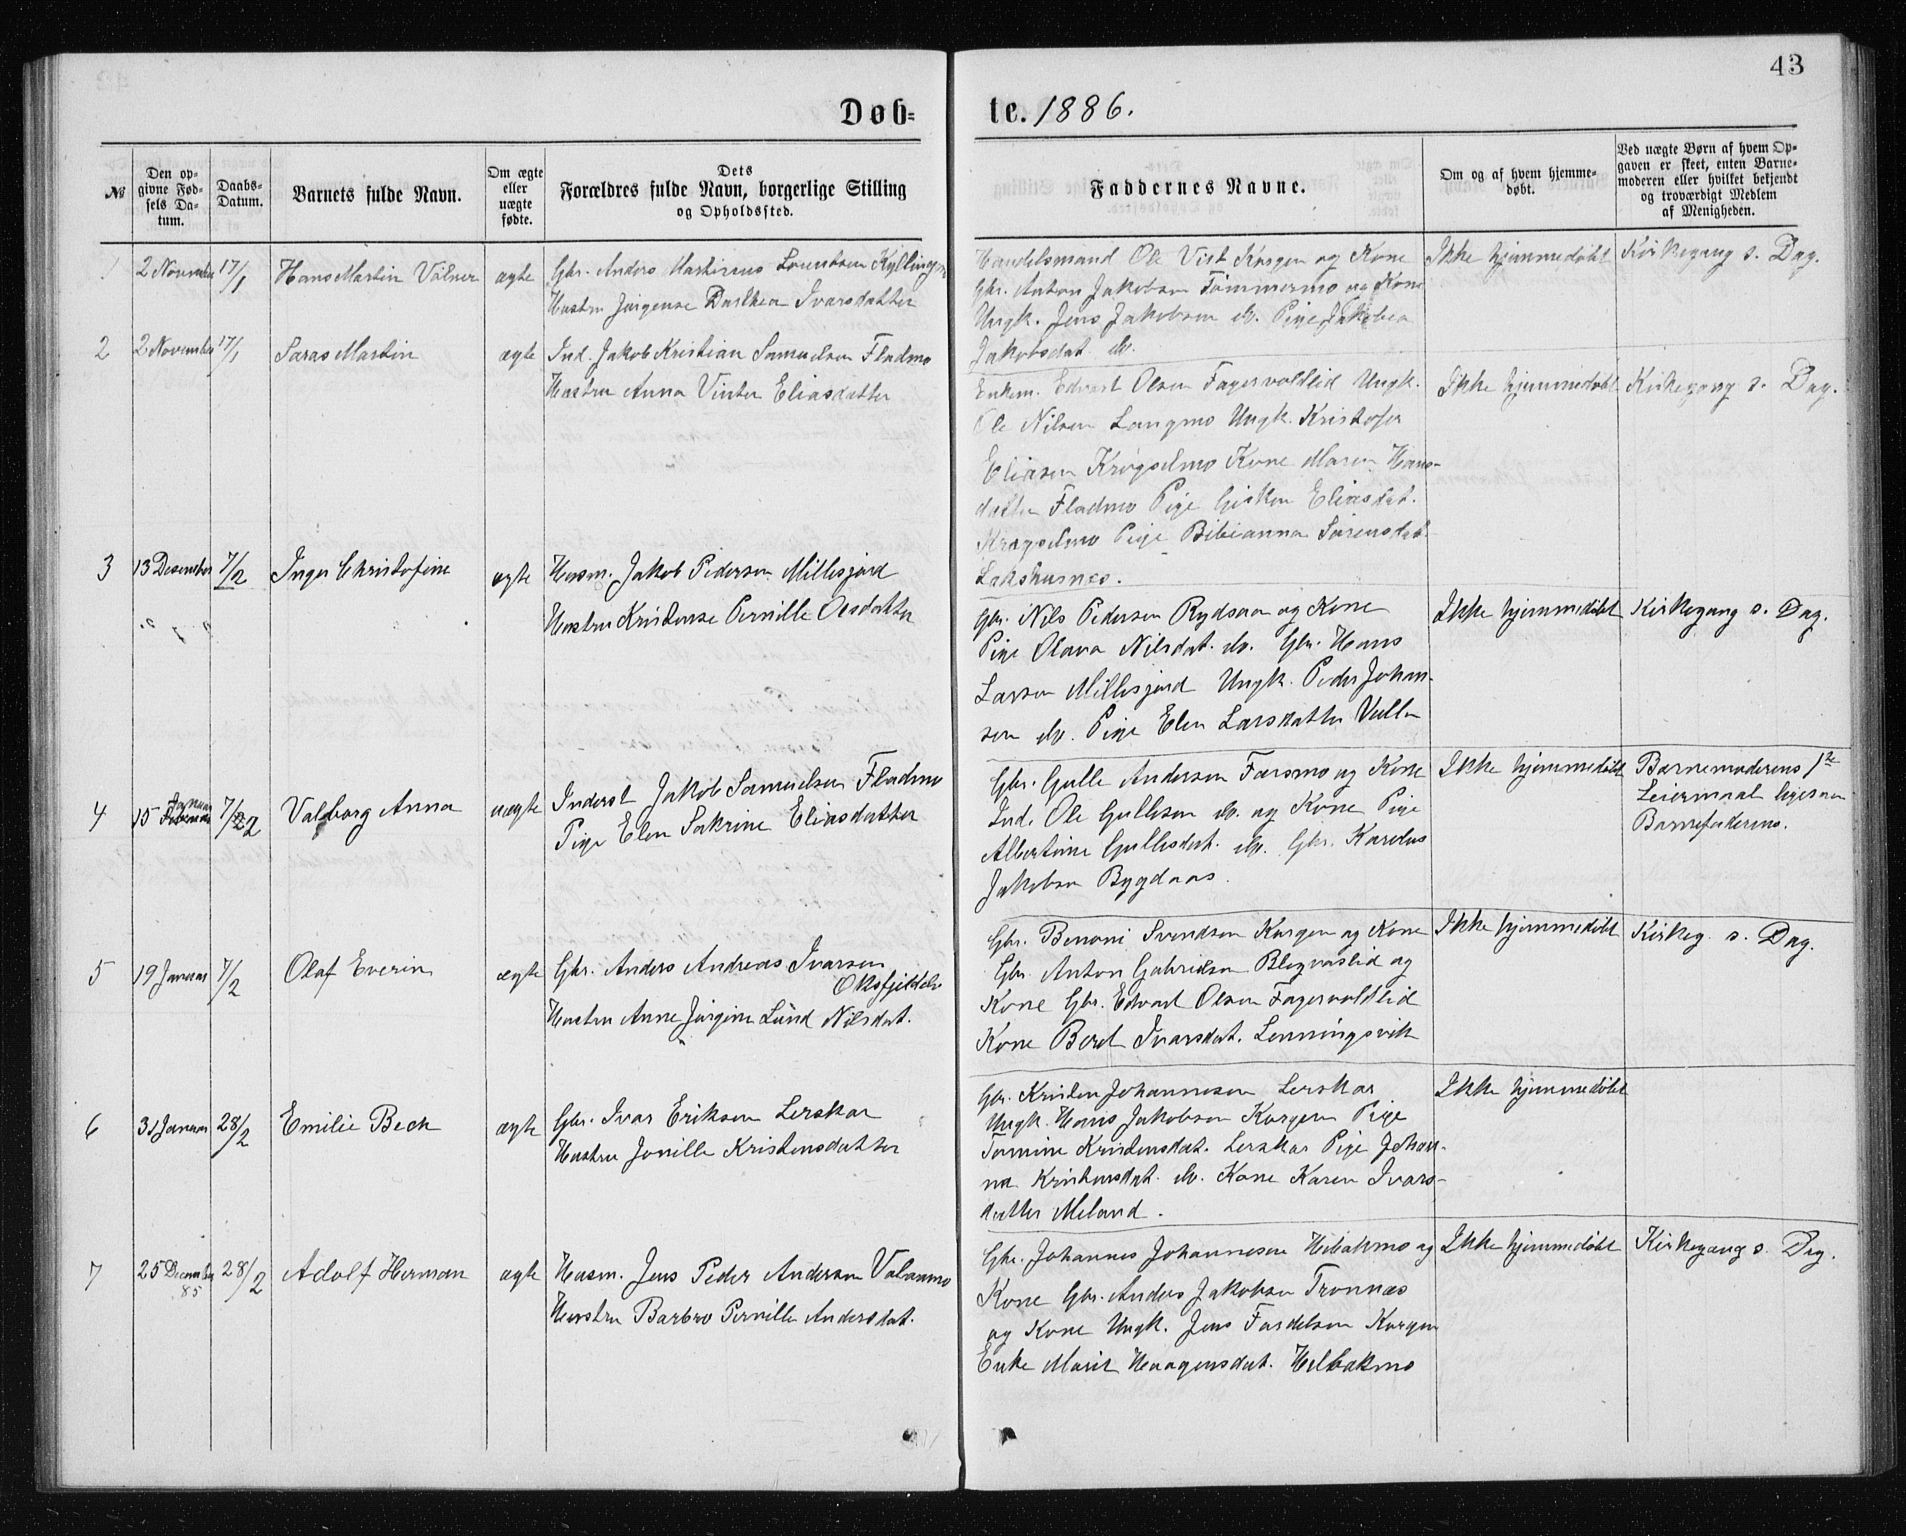 43
Døb-
te. 1886.
№
Den op-
givne Fød-
sels Da-
tum.
Daabs-
Datum.
Barnets fulde Navn.
Om ægte
eller
uægte
fødte.
Dets
Forældres fulde Navn, borgerlige Stilling
og Opholdssted.
Faddernes Navne.
Om og af hvem hjemme-
døbt.
Ved uægte Børn af hvem Op-
gaven er skeet, enten Barne-
moderen eller hvilket bekjendt
og troværdigt Medlem
af Menigheden.
1 2 November 17/1 Hans Martin Vilner ægte Gbr. Anders Martinus
Hustru Jørgense Dorthea Ivarsdatter
Handelsmand Ole Vist Korgen og Kone
Gbr. Anton Jakobsen Tømmermo og Kone
Ungk. Jens Jakobsen do. Pige Jakobea
Jakobsdat. do.
Ikke hjemmedøbt Kirkegang s. Dag.
2 2 November 17/1 Saras Martin ægte Ind. Jakob Kristian Samuelsen Fladmo
Hustru Anna Vinter Eliasdatter
Enkem. Edvart Olsen Fagervoldlid Ungk.
Ole Nilsen Langmo Ungk. Kristofer
Eliasen Krogselmo Kone Maren Hans-
datter Fladmo Pige Gisken Eliasdat.
Krogselmo Pige Bibianna Sørensdat.
Lakshusnes.
Ikke hjemmedøbt Kirkegang s. Dag.
3 13 Desember 7/2 Inger Christofine ægte Husm. Jakob Pedersen Millisjord
Hustru Kristense Pernille Olsdatter
Gbr. Nils Pedersen Rydsaa og Kone
Pige Olava Nilsdat. do. Gbr. Hans
Larsen Millisjord Ungk. Peder Johan-
sen do. Pige Elen Larsdatter
Ikke hjemmedøbt Kirkegang s. Dag.
4 15 Januar 7/2 Valborg Anna uægte Inderst Jakob Samuelsen Fladmo
Pige Elen Sakrine Eliasdatter
Gbr. Gulle Andersen Farsmo og Kone
Ind. Ole Gullesen do. og Kone Pige
Albertine Gullesdat. do. Gbr. Karelus
Jakobsen Bygdaas.
Ikke hjemmedøbt Barnemoderens 1te
Leiermaal ligesaa
Barnefaderens.
5 19 Januar 7/2 Olaf Everin ægte Gbr. Anders Andreas Ivarsen
Oksfjeldel
Hustru Anne Jørgine Lund Nilsdat.
Gbr. Benoni Svendsen Korgen og Kone
Gbr. Anton Gabrielsen Blegvaslid og
Kone Gbr. Edvart Olsen Fagervoldlid
Kone Beret Ivarsdat. Lenningsvik
Ikke hjemmedøbt Kirkeg. s. Dag.
6 31 Januar 28/2 Emilie Beck ægte Gbr. Ivar Eriksen Lerskar
Hustru Jonille Kristensdatter
Gbr. Kristen Johannesen Lerskar
Ungk. Hans Jakobsen Korgen Pige
Tomine Kristensdat. Lerskar Pige Johan-
na Kristensdat. do. Kone Karen Ivars-
datter Meland.
Ikke hjemmedøbt
7 25 December 85 28/2 Adolf Herman ægte Husm. Jens Peder Andersen Valaamo
Hustru Barbro Pernille Andersdat.
Gbr. Johannes Johannesen Hilbakmo og
Kone Gbr. Anders Jakobsen Tronnæs
og Kone Ungk. Jens Fordelsen Korgen
Enke Marit Haagensdat. Hilbakmo
Ikke hjemmedøbt Kirkegang s. Dag.